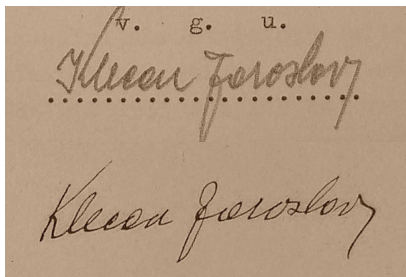 v. g. u.
Klecan Jaroslav
Klecan Jaroslav